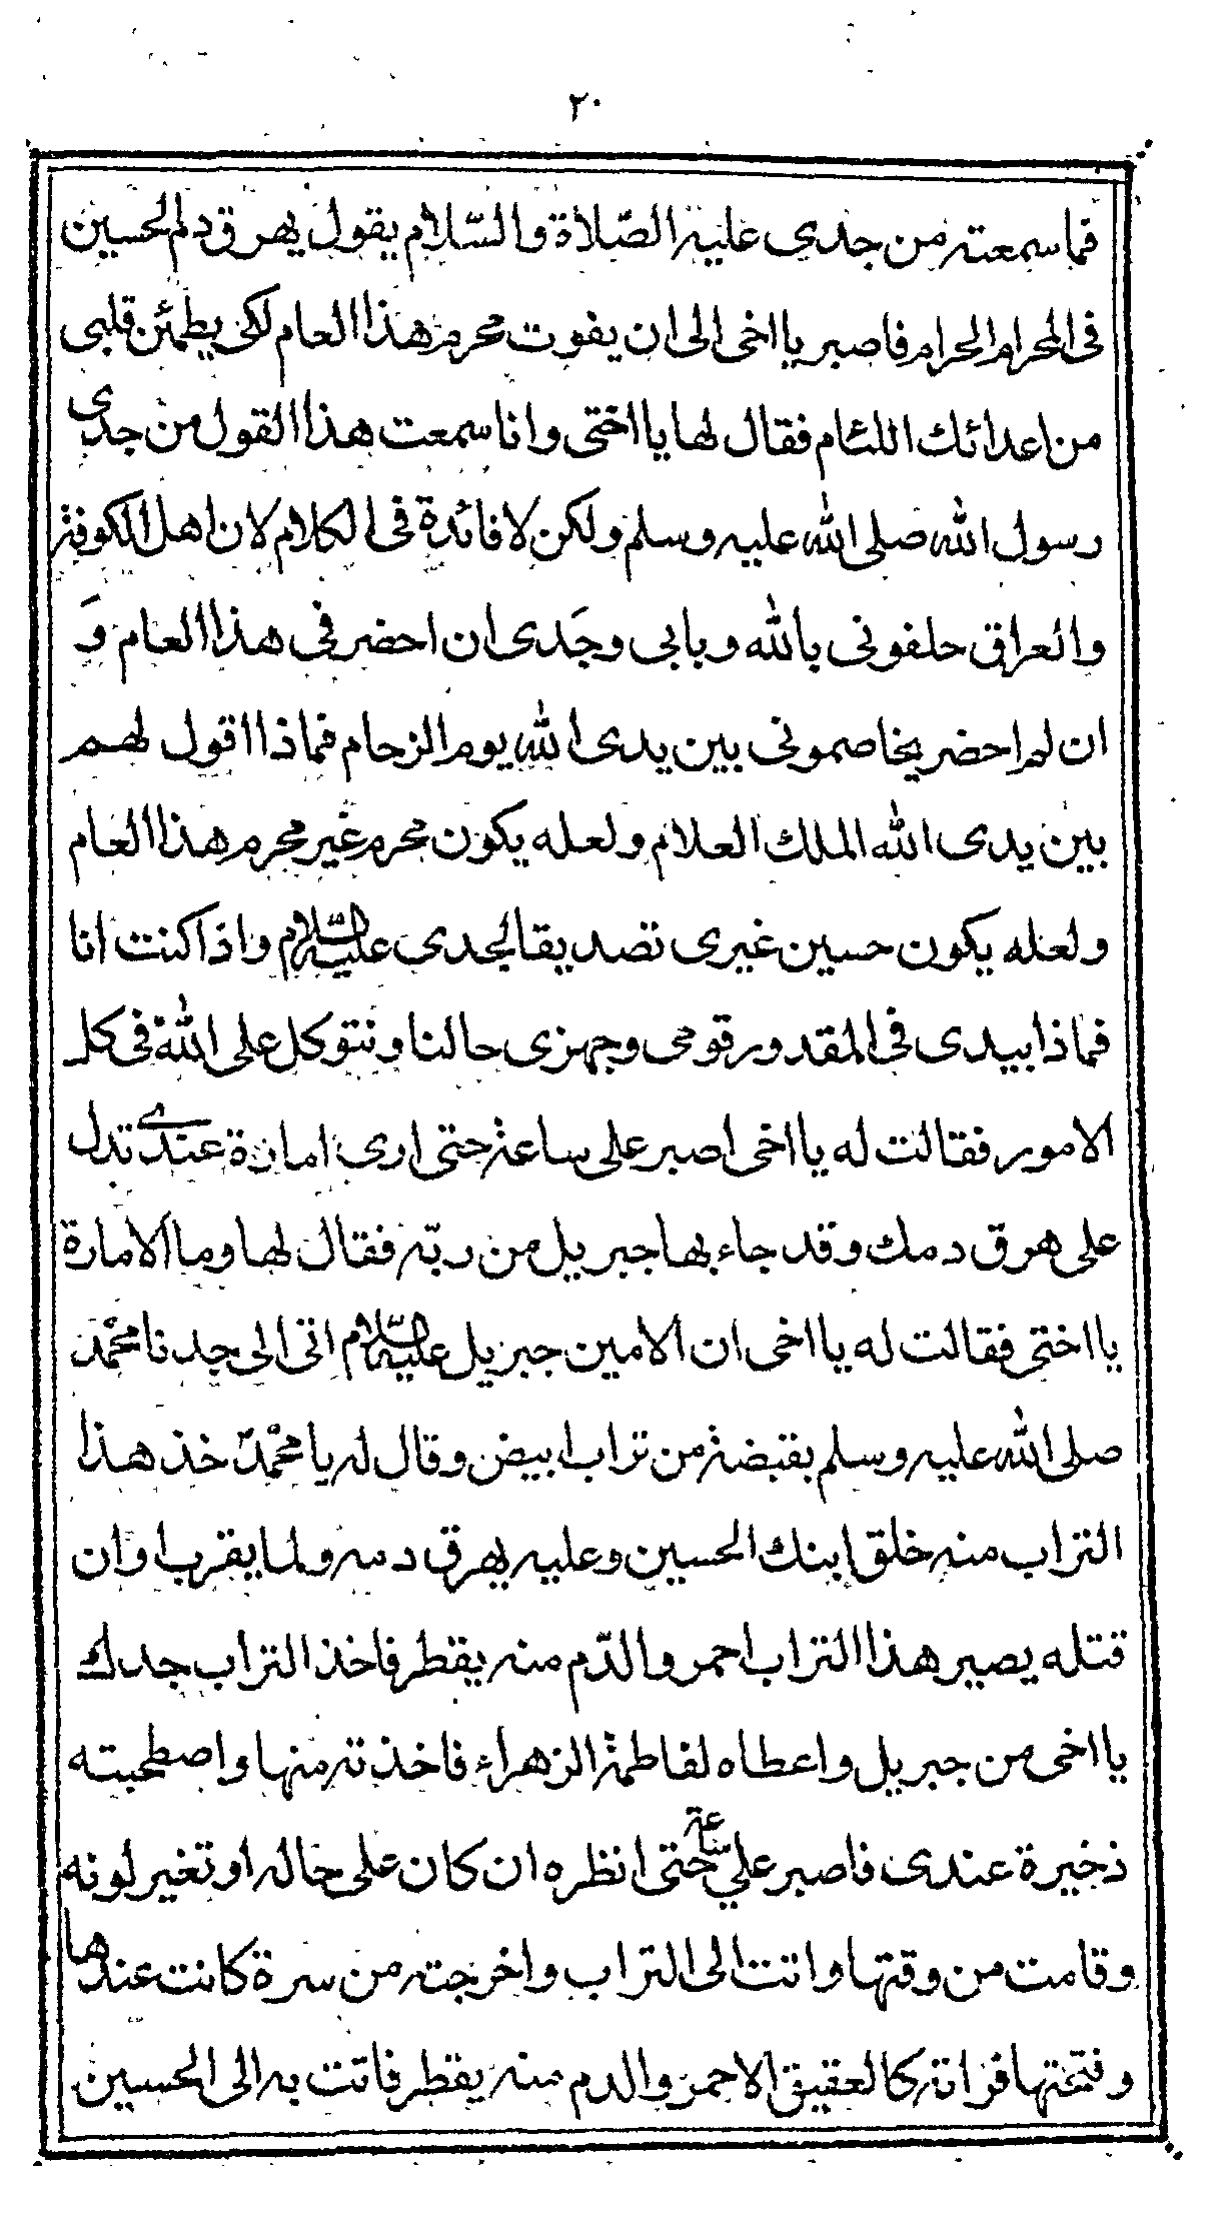 ٢٠
فما سمعته من جدى عليه الصّلاة والسّلام يقول يهرق دم الحسين
فى المحرام الحرام فاصبر يا اخى الى ان يفوت محرم هذا العام لكى يطمئن قلبى
من اعدائك اللئام فقال لها يا اختى وانا سمعت هذا القول من جدى
رسول الله صلى الله عليه وسلم ولكن لا فائدة فى الكلام لان اهل الكوفة
والعراق حلفونى بالله وبابى وجَدى ان احضر فى هذا العام وَ
ان لم احضر يخاصمونى بين يدى الله يوم الزحام فماذا اقول لهم
بين يدى الله الملك العلام ولعله يكون محرم غير محرم هذا العام
ولعله يكون حسين غيرى تصديقا لجدى عليه السّلام واذا كنت انا
فماذا بيدى فى المقدور قومى وجهزى حالنا ونتوكل على الله فى كل
الامور فقالت له يا اخى اصبر على ساعة حتى ارى امارة عندى تدل
على هرق دمك وقد جاء بها جبريل من ربّه فقال لها وما الامارة
يا اختى فقالت له يا اخى ان الامين جبريل عليه السّلام اتى الى جدنا محمّد
صلى الله عليه وسلم بقبضة من تراب ابيض وقال له يا محمّد خذ هذا
التراب منه خلق ابنك الحسين وعليه يهرق دمه ولما يقرب اوان
قتله يصير هذا التراب احمر والدّم منه يقطر فاخذ التراب جدك
يا اخى من جبريل واعطاه لفاطمة الزهراء فاخذته منها واصطحبته
ذخيرة عندى فاصبر علي ساعة حتى انظره ان كان على حاله او تغير لونه
وقامت من وقتها واتت الى التراب واخرجته من سرة كانت عندها
وفتحتها فراته كالعقيق الاحمر والدم منه يقطر فاتت به الى الحسين